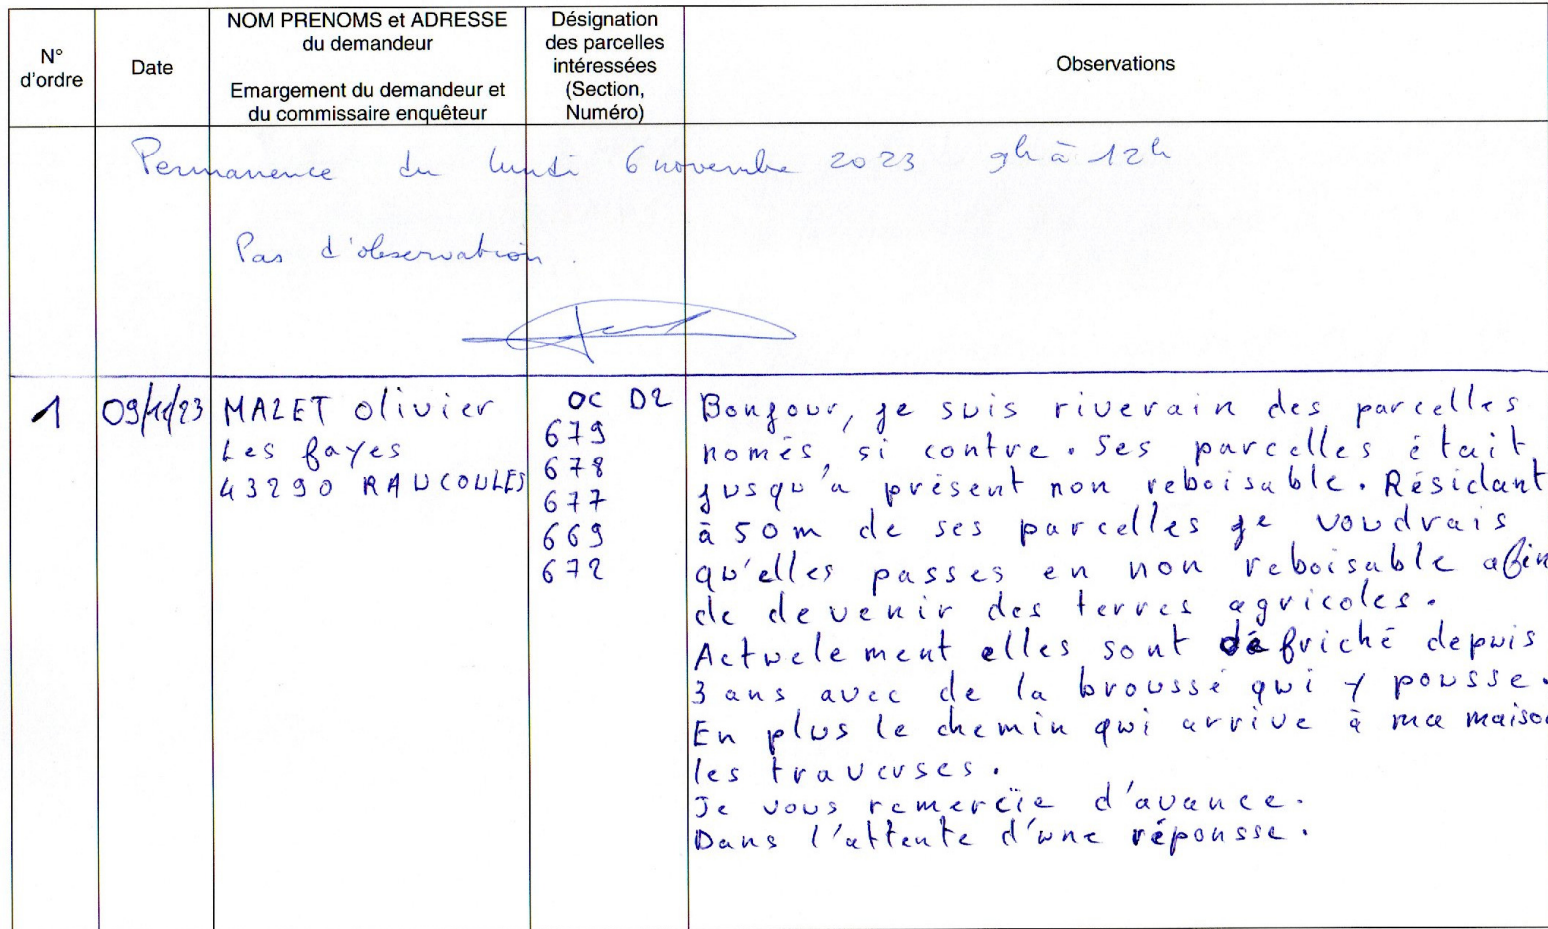 N° d'ordre
Date
NOM PRENOMS et ADRESSE
du demandeur
Emargement du demandeur et
du commissaire enquêteur
Désignation
des parcelles
intéressées
(Section,
Numéro)
Observations
Permanence du lundi 6 novembre 2023 9h à 12h
Pas d'observation.
1
09/11/23
MAZET olivier
Les fayes
43290 RAUCOULES
OC D2
679
678
677
669
672
Bonjour, je suis riverain des parcelles
només, si contre. Ses parcelles était
jusqu'a présent non reboisable. Résidant
à 50m de ses parcelles je voudrais
qu'elles passes en non reboisable afin
de devenir des terres agricoles.
Actuelement elles sont défriché depuis
3 ans avec de la broussé qui y pousse.
En plus le chemin qui arrive à ma maison
les traverses.
Je vous remercïe d'avance.
Dans l'attente d'une réponsse.